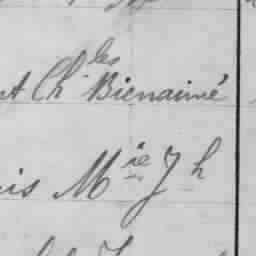 Ch.les Bienaimé
Mie Jh